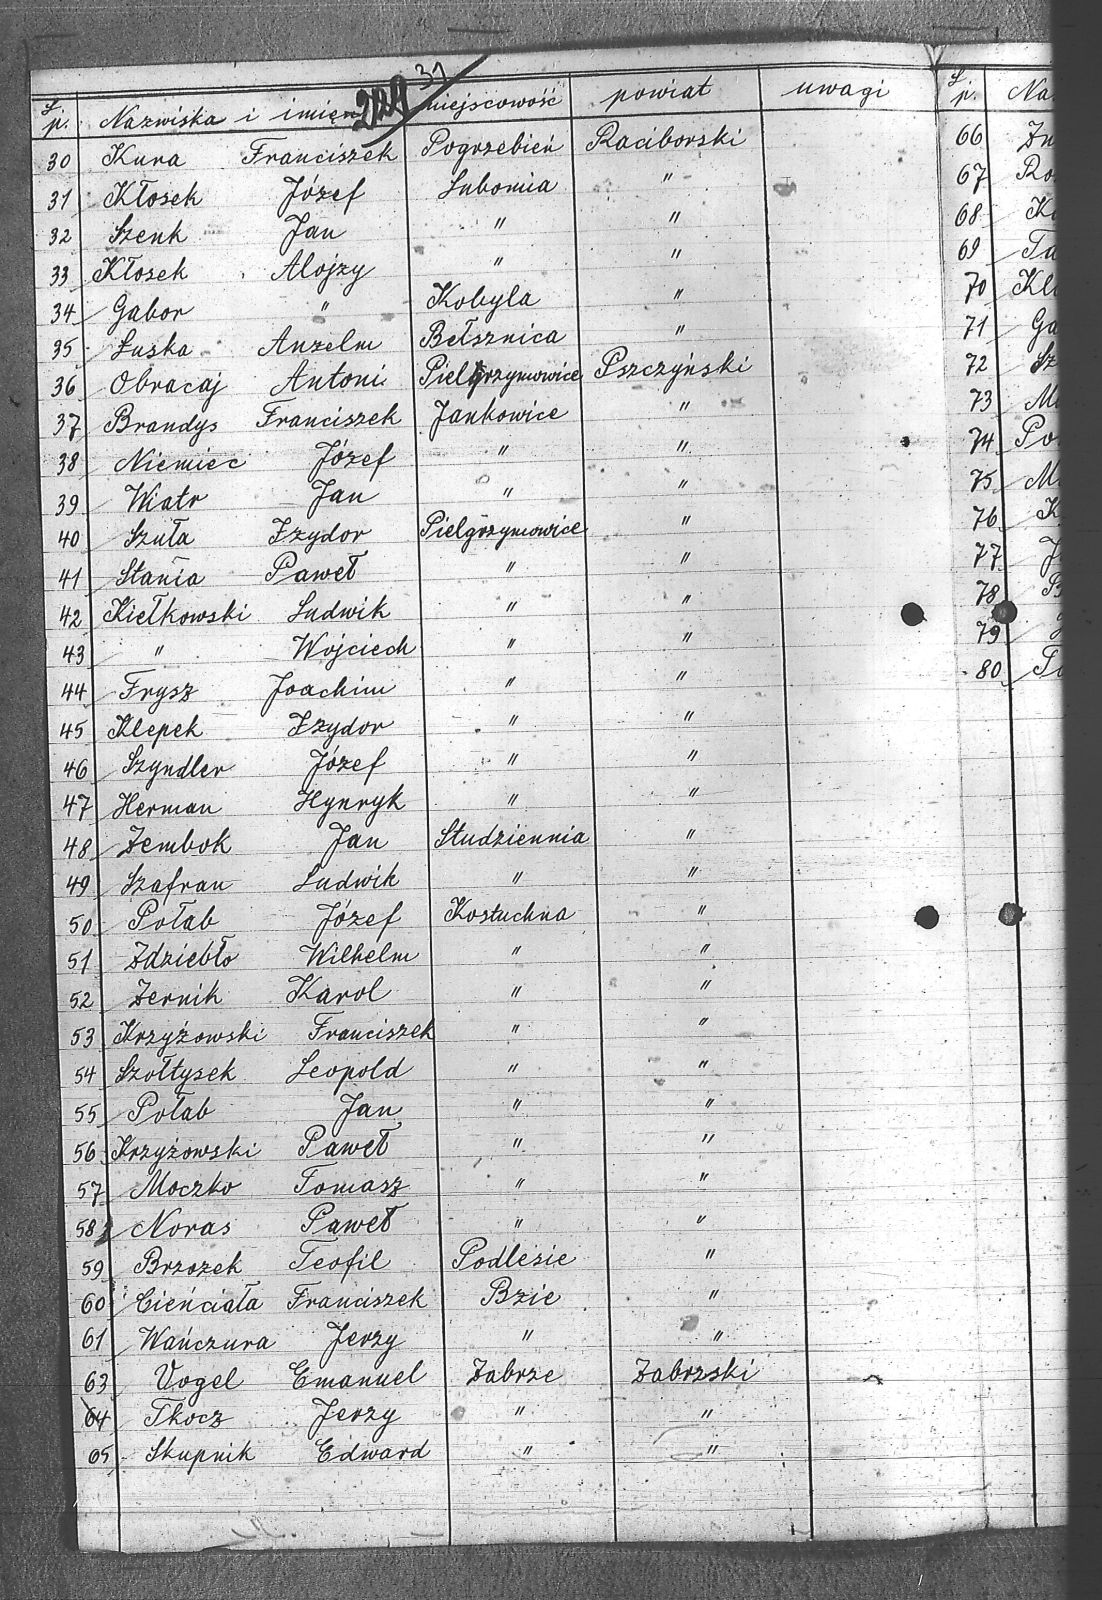 31
224
L.p. Nazwiska i imię miejscowość powiat uwagi
30 Kura Franciszek Pogrzebień Raciborski
31 Kłosek Józef Lubomia "
32 Szenk Jan " "
33 Kłosek Alojzy " "
34 Gabor " Kobyla "
35 Łuska Anzelm Bełsznica "
36 Obracaj Antoni Pielgrzymowice Pszczyński
37 Brandys Franciszek Jankowice "
38 Niemiec Józef " "
39 Wiatr Jan " "
40 Szuła Izydor Pielgrzymowice "
41 Stania Paweł " "
42 Kiełkowski Ludwik " "
43 " Wojciech " "
44 Frysz Joachim " "
45 Klepek Izydor " "
46 Szyndler Józef " "
47 Herman Hynryk " "
48 Zembok Jan Studziennia "
49 Szafran Ludwik " "
50 Połab Józef Kostuchna "
51 Zdziebło Wilhelm " "
52 Żernik Karol " "
53 Krzyżowski Franciszek " "
54 Szołtysek Leopold " "
55 Połab Jan " "
56 Krzyżowski Paweł " "
57 Moczko Tomasz " "
58 Noras Paweł " "
59 Brzozek Teofil Podlesie "
60 Cieńciała Franciszek Bzie "
61 Wańczura Jerzy " "
63 Vogel Emanuel Zabrze Zabrzski
64 Tkocz Jerzy " "
65 Skupnik Edward " "
L.p. Na
66
67 Ro
68
69
70 Kl
71 Ga
72 Sz
73 M
74 Po
75 M
76 K
77 J
78 B
79
80